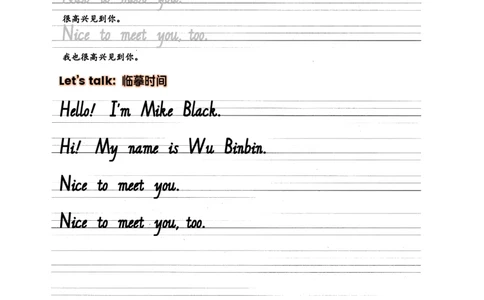 Nice to meet you.
很高兴见到你。
Nice to meet you, too.
我也很高兴见到你。
Let's talk: 临摹时间
Hello! I'm Mike Black.
Hi! My name is Wu Binbin.
Nice to meet you.
Nice to meet you, too.